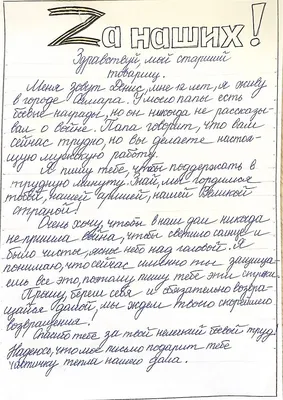 Zа наших!
Здравствуй, мой старший
товарищ.
Меня зовут Денис, мне 12 лет, я живу
в городе Самара. У моего папы есть
боевые награды, но он никогда не рассказы-
вал о войне. Папа говорит, что вам
сейчас трудно, но вы делаете настоя-
щую мужскую работу.
Я пишу тебе, чтоб поддержать в
трудную минуту. Знай, мы гордимся
тобой, нашей армией, нашей Великой
страной!
Очень хочу, чтобы в наш дом никогда
не пришла война, чтобы светило солнце и
было чистое, ясное небо над головой. Я
понимаю, что сейчас именно ты защища-
ешь все это, поэтому пишу тебе эти строки.
Прошу, береги себя и обязательно возвра-
щайся домой, мы ждем твоего скорейшего
возвращения!
Спасибо тебе за твой нелегкий боевой труд!
Надеюсь, что мое письмо подарит тебе
частичку тепла нашего дома.